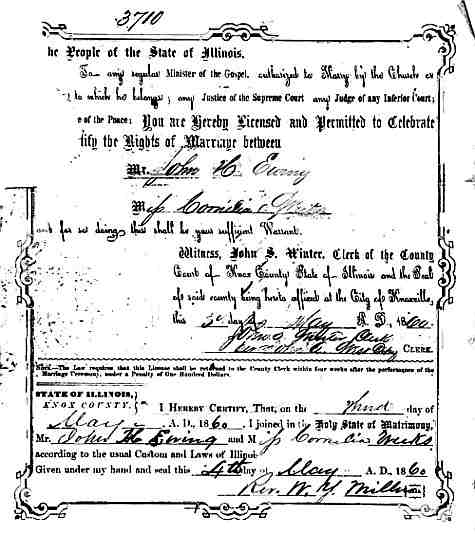 3710
he People of the State of Illinois,
To any regular Minister of the Gospel, authorized to Marry by the Church or
to which he belongs; any Justice of the Supreme Court any Judge of any Inferior Court;
e of the Peace: You are Hereby Licensed and Permitted to Celebrate
tify the Rights of Marriage between
Mr. John H. Ewing
Miss Cornelia
and for so doing, this shall be your sufficient Warrant.
Witness, John S. Winter, Clerk of the County
Court of Knox County, State of Illinois and the Seal
of said county being hereto affixed at the City of Knoxville,
this 3d day of May A. D., 1860
John S. Winter Clerk
CLERK.
NOTE.—The Law requires that this License shall be returned to the County Clerk within four weeks after the performance of the
Marriage Ceremony, under a Penalty of One Hundred Dollars.
STATE OF ILLINOIS,
KNOX COUNTY. ss I HEREBY CERTIFY, That, on the third day of
May A. D., 1860 I joined in the Holy State of Matrimony,
Mr. John H. Ewing and Miss Cornelia Weeks
according to the usual Custom and Laws of Illinois
Given under my hand and seal this 4th day of May A. D. 1860
Rev. W. Y. Miller